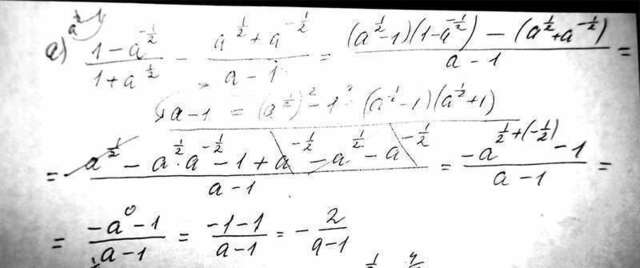 a^{\frac{1}{2}}-1
a) \frac{1-a^{-\frac{1}{2}}}{1+a^{\frac{1}{2}}} - \frac{a^{\frac{1}{2}}+a^{-\frac{1}{2}}}{a-1} = \frac{(a^{\frac{1}{2}}-1)(1-a^{-\frac{1}{2}}) - (a^{\frac{1}{2}}+a^{-\frac{1}{2}})}{a-1} =
a-1 = (a^{\frac{1}{2}})^2-1^2 (a^{\frac{1}{2}}-1)(a^{\frac{1}{2}}+1)
= \frac{a^{\frac{1}{2}} - a^{\frac{1}{2}} \cdot a^{-\frac{1}{2}} - 1 + a^{-\frac{1}{2}} - a^{\frac{1}{2}} - a^{-\frac{1}{2}}}{a-1} = \frac{-a^{\frac{1}{2}+(-\frac{1}{2})} - 1}{a-1} =
= \frac{-a^0-1}{a-1} = \frac{-1-1}{a-1} = -\frac{2}{a-1}